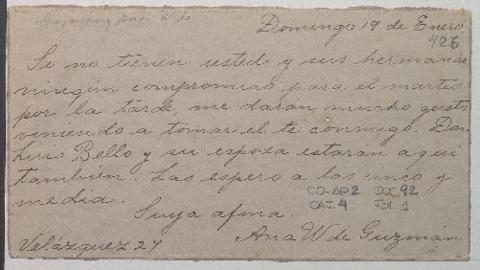 Guzmán, Ana W de
Domingo 19 de Enero
426
Si no tienen usted y sus hermanas
ningún compromiso para el martes
por la tarde me darán mucho gusto
viniendo a tomar el te conmigo. Don
Luis Bello y su esposa estarán aquí
también. Las espero a las cinco y
media.
CO-AP2 DOC 92
CAJ. 4 FOL 1
Suya afma.
Ana W de Guzmán
Velázquez 27